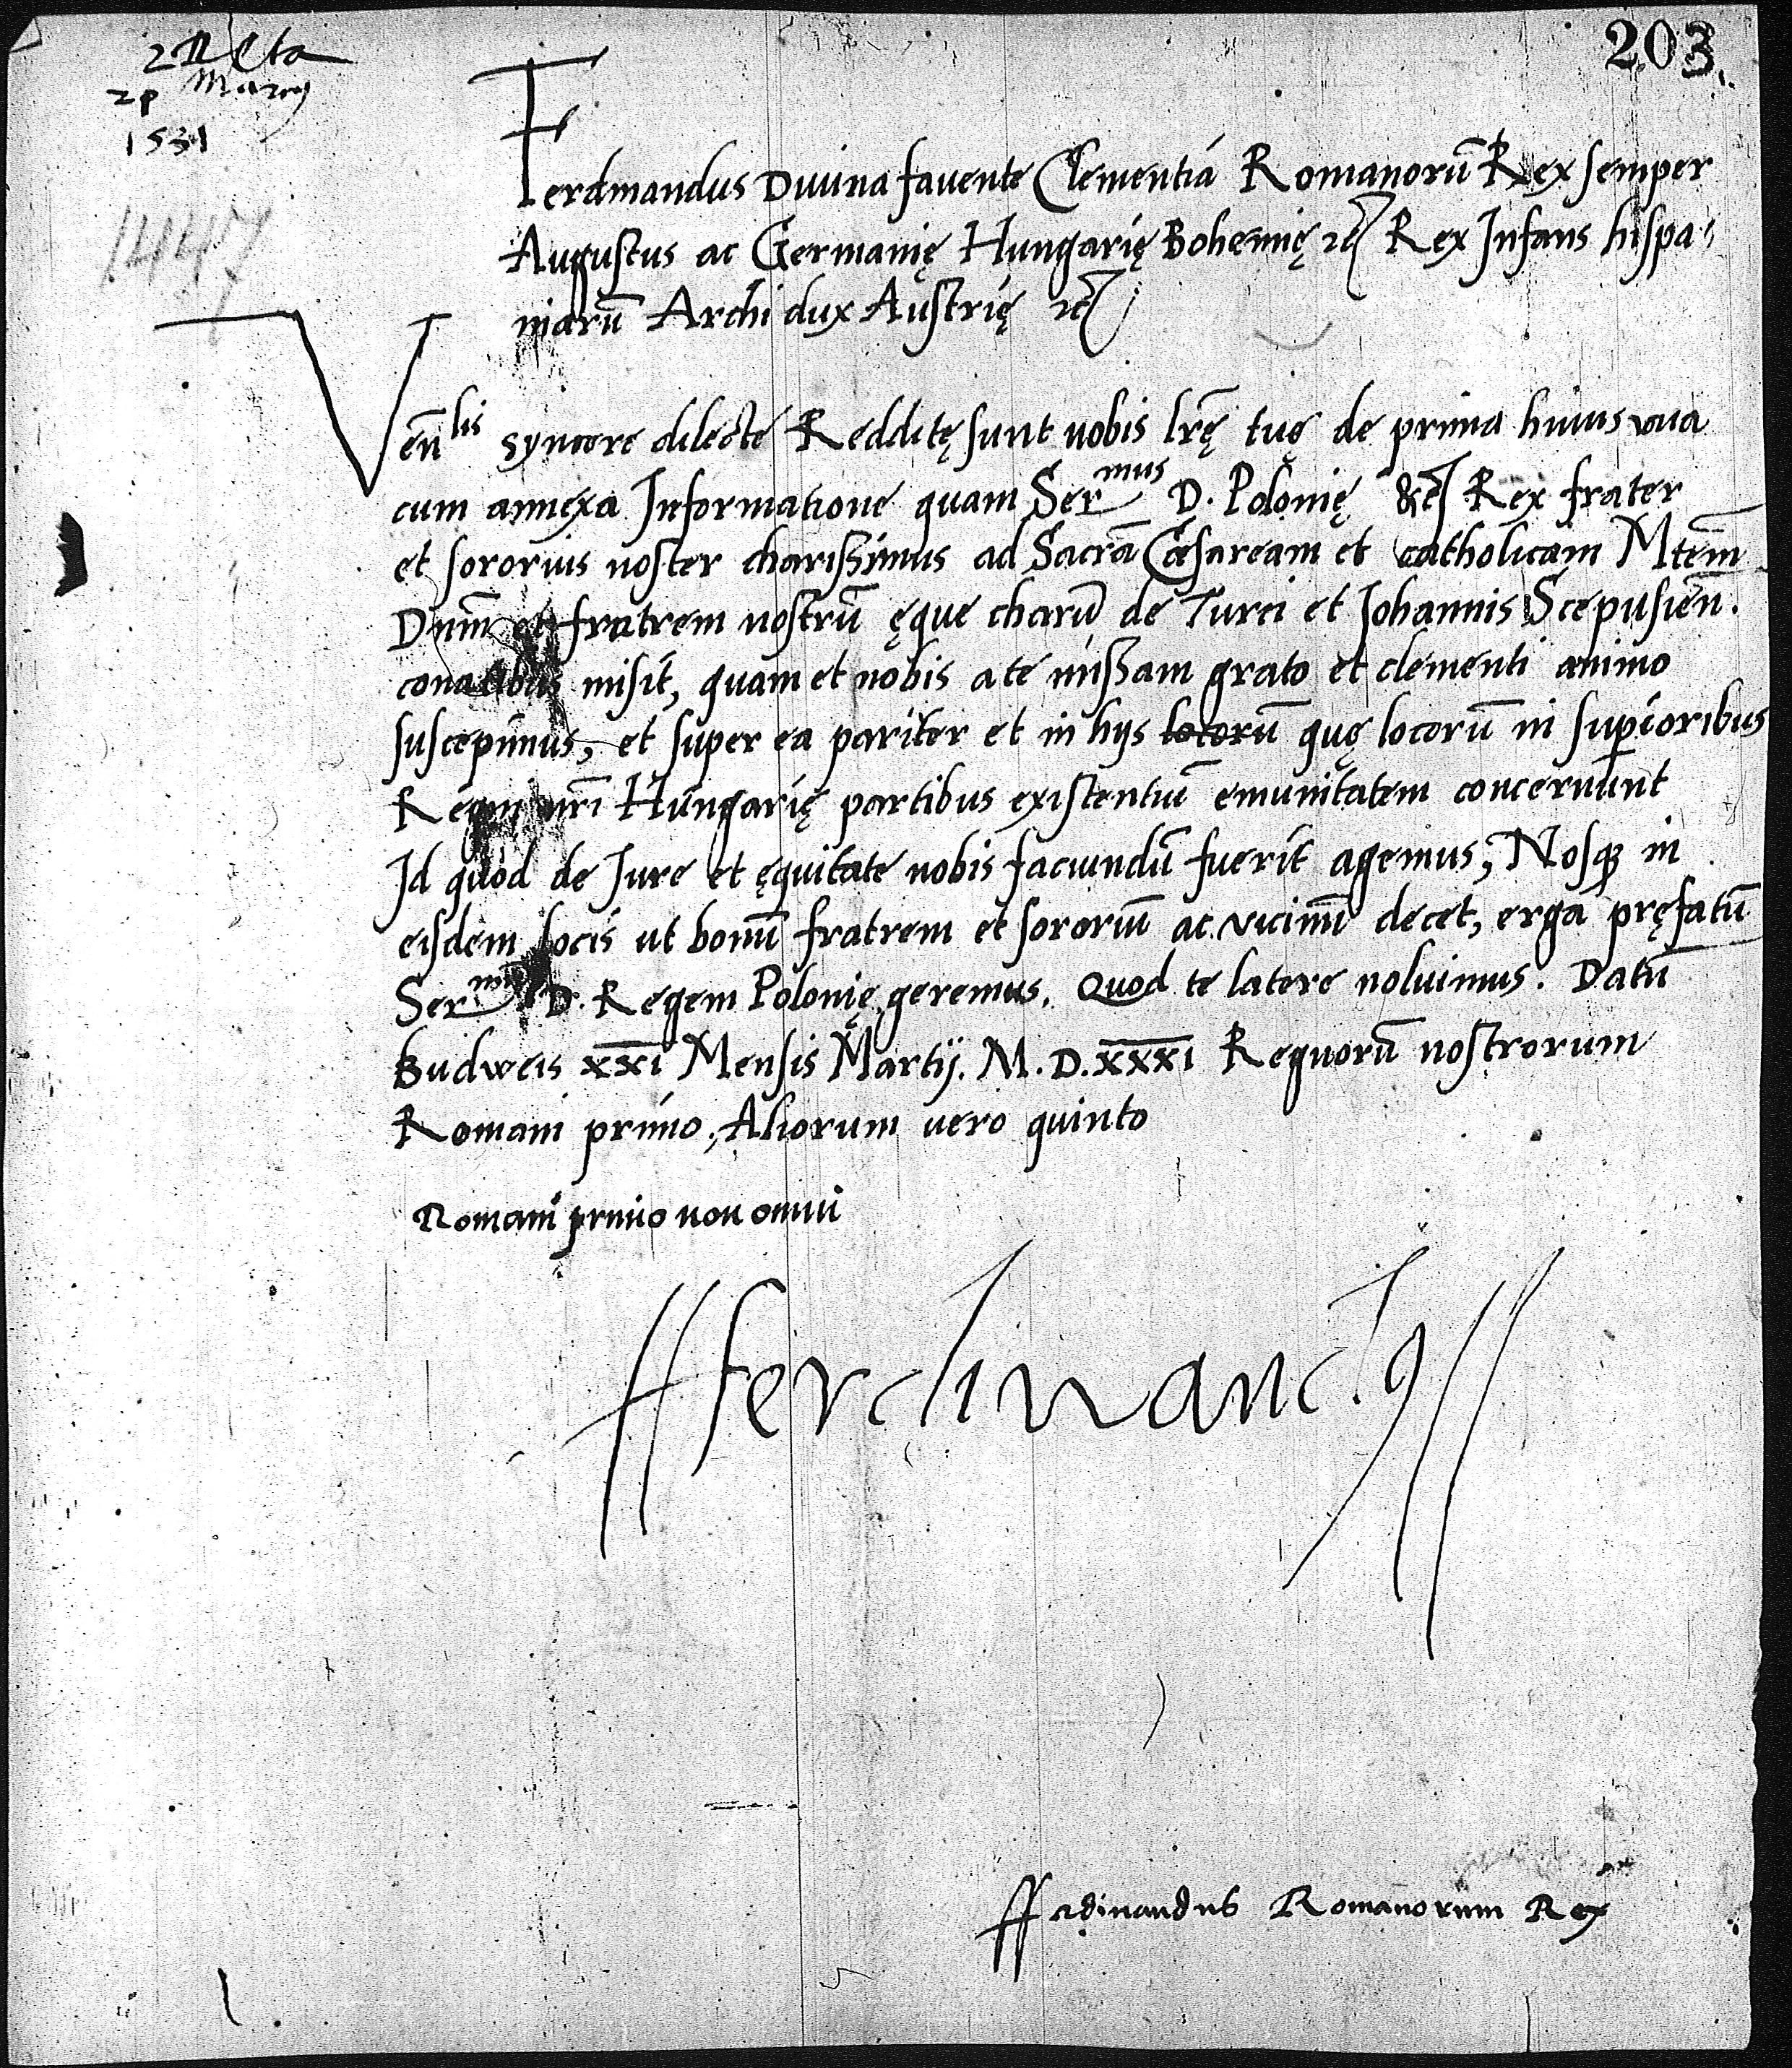 203.
21 Marcij
1531
1447
Ferdinandus Diuina fauente Clementia Romanorū Rex semper
Augustus ac Germanię Hungarię Bohemię &c̃ Rex Infans hispa-
niarū Archi dux Austrię &c̃
Veñlis syncere dilecte Redditę sunt nobis lr̃ę tuę de prima huius vna
cum annexa Informatione quam Sermus D. Polonię &c̃ Rex frater
et sororius noster charissimus ad Sacrā Cęsaream et catholicam Mtem̄
Dnm̄ et fratrem nostrū ęque charū de Turci et Johannis Scepusieñ.
conatibus misit, quam et nobis a te missam grato et clementi animo
suscepimus, et super ea pariter et in hijs locorū quę locorū in superioribus
Regni nr̄i Hungarię partibus existentiū emunitatem concernunt
Id quod de Jure et ęquitate nobis faciundū fuerit agemus, Nosq̨ in
eisdem locis ut bonū fratrem et sororiū ac vicinū decet, erga pręfatū
Sermū D. Regem Polonię geremus. Quod te latere noluimus. Datū
Budweis xxi Mensis Martij. M.D.xxxi Regnorū nostrorum
Romani primo, Aliorum vero quinto
Romani primo non omni
Ferdinandꝰ
Ferdinandus Romanorum Rex